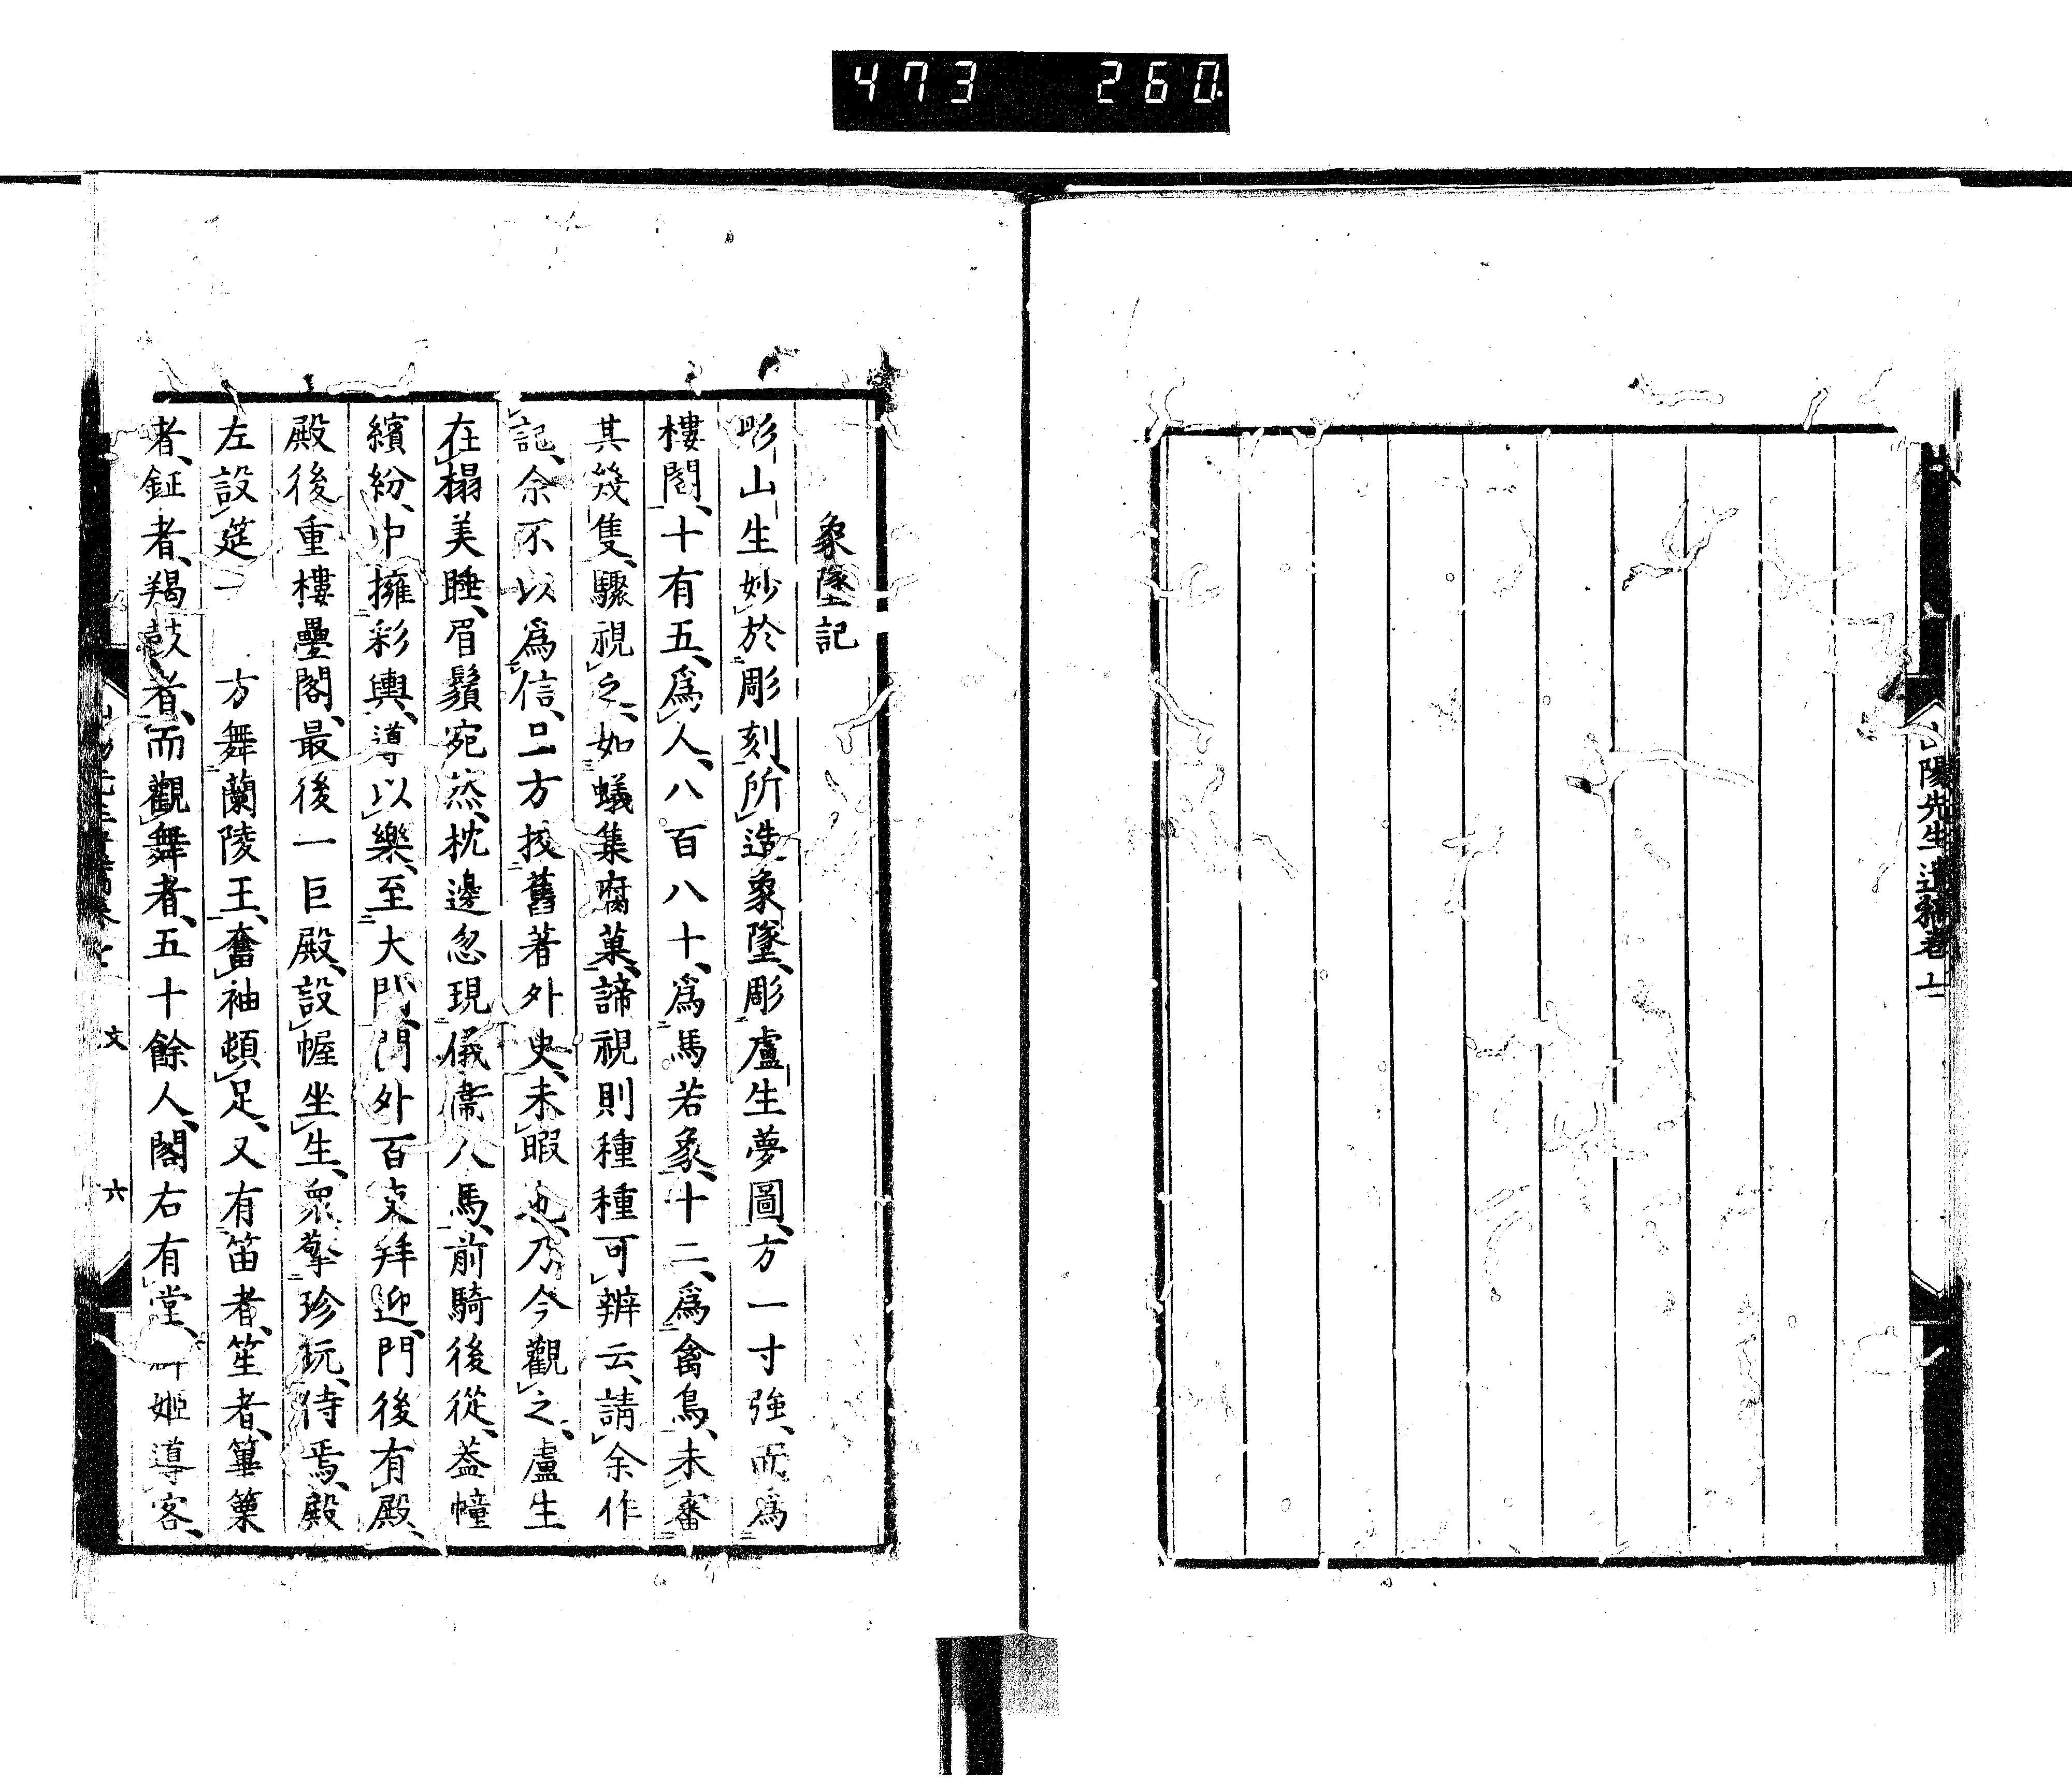 473 260
山陽先生遺稿卷上
象墜記
彫山生妙於彫刻、所造象墜、彫盧生夢圖、方一寸強、而爲
樓閣、十有五、爲人、八百八十、爲馬若象、十二、爲禽鳥、未審
其幾隻、驟視之、如蟻集腐菓、諦視則種種可辨云、請余作
記、余不以爲信、且方挍舊著外史、未暇也、乃今觀之、盧生
在榻美睡、眉鬚宛然、枕邊忽現儀衞人馬、前騎後從、蓋幢
繽紛、中擁彩輿、導以樂、至大門、門外百支拜迎、門後有殿、
殿後重樓疊閣、最後一巨殿、設幄坐生、衆擎珍玩、侍焉、殿
左設筵一 方舞蘭陵王、奮袖頓足、又有笛者、笙者、篳篥
者、鉦者、羯鼓者、而觀舞者、五十餘人、閣右有堂、姬導客、
文 六